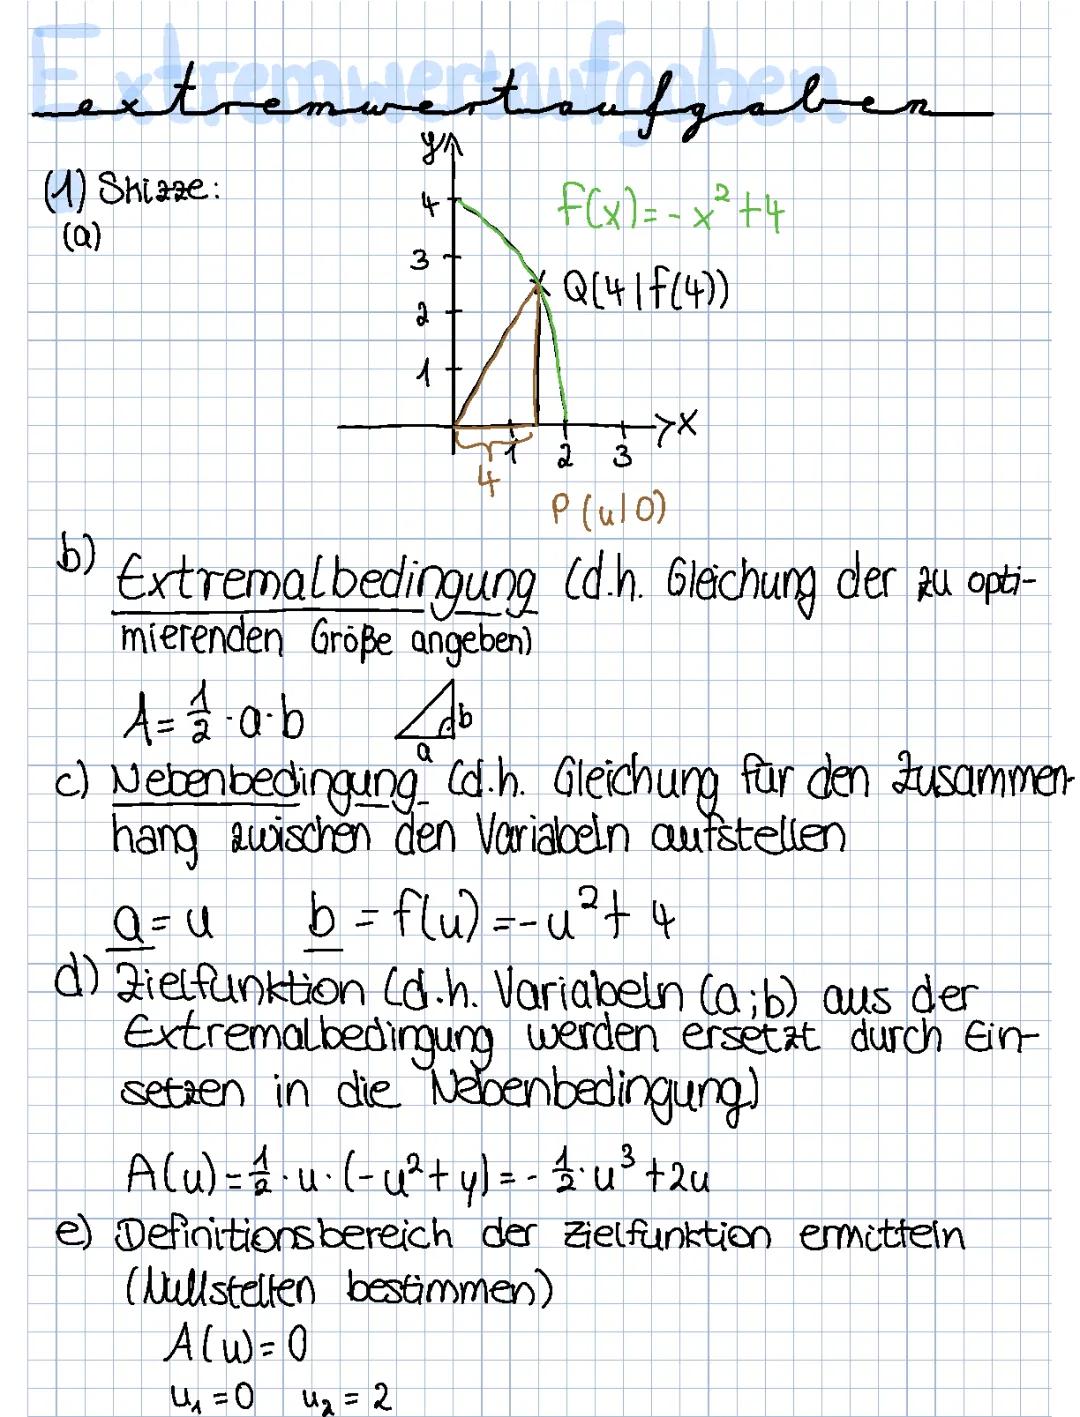 Extremwertaufgaben
extremwertaufgaben
y
(1) Skizze:
(a)
4
f(x)=-x²+4
3
Q(4|f(4))
2
1
x
1 2 3
4
P(u|0)
b) Extremalbedingung (d.h. Gleichung der zu opti-
mierenden Größe angeben)
A=½·a·b
b
a
c) Nebenbedingung (d.h. Gleichung für den Zusammen-
hang zwischen den Variabeln aufstellen
a=u b=f(u)=-u²+4
d) Zielfunktion (d.h. Variabeln (a;b) aus der
Extremalbedingung werden ersetzt durch Ein-
setzen in die Nebenbedingung)
A(u)=½·u·(-u²+y)=-½·u³+2u
e) Definitionsbereich der Zielfunktion ermitteln
(Nullstellen bestimmen)
A(u)=0
u₁=0 u₂=2